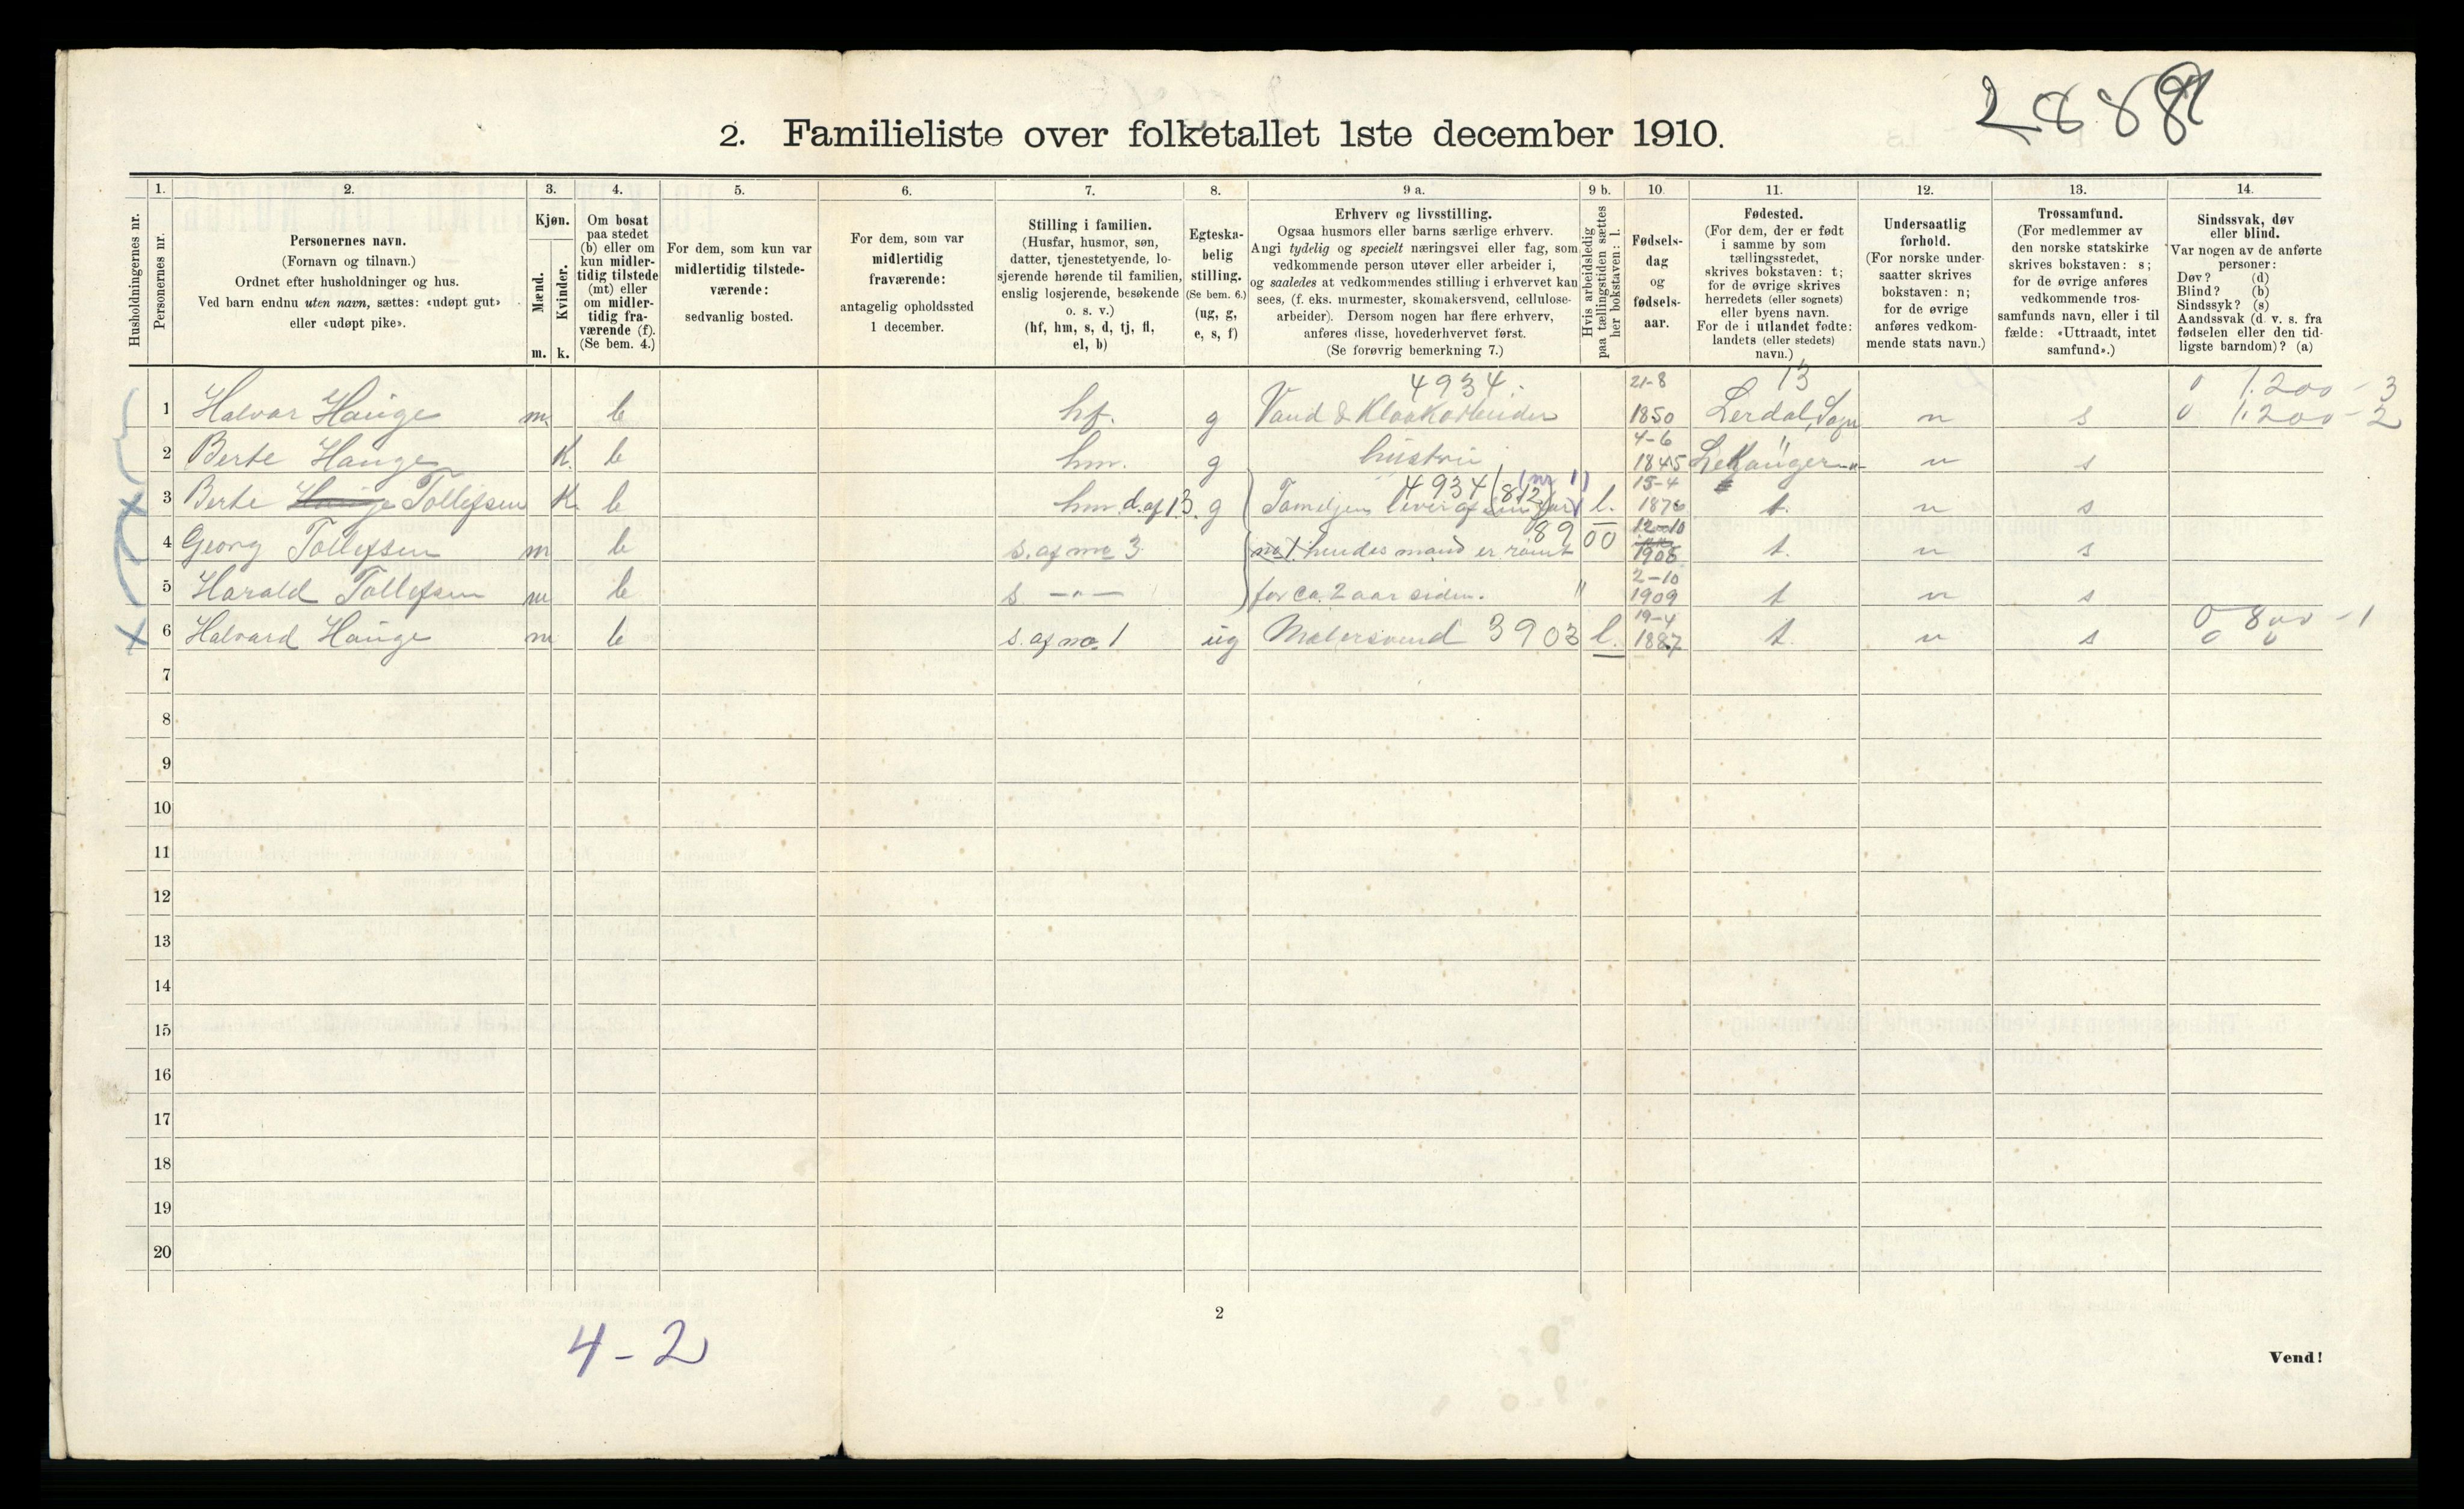 2888
2. Familieliste over folketallet 1ste december 1910.
1. 2. 3. 4. 5. 6. 7. 8. 9 a. 9 b. 10. 11. 12. 13. 14.
Husholdningernes nr.
Personernes nr.
Personernes navn.
(Fornavn og tilnavn.)
Ordnet efter husholdninger og hus.
Ved barn endnu uten navn, sættes: «udøpt gut»
eller «udøpt pike».
Kjøn.
Mænd.
Kvinder.
m. k.
Om bosat
paa stedet
(b) eller om
kun midler-
tidig tilstede
(mt) eller
om midler-
tidig fra-
værende (f).
(Se bem. 4.)
For dem, som kun var
midlertidig tilstede-
værende:
sedvanlig bosted.
For dem, som var
midlertidig
fraværende:
antagelig opholdssted
1 december.
Stilling i familien.
(Husfar, husmor, søn,
datter, tjenestetyende, lo-
sjerende hørende til familien,
enslig losjerende, besøkende
o. s. v.)
(hf, hm, s, d, tj, fl,
el, b)
Egteska-
belig
stilling.
(Se bem. 6.)
(ug, g,
e, s, f)
Erhverv og livsstilling.
Ogsaa husmors eller barns særlige erhverv.
Angi tydelig og specielt næringsvei eller fag, som
vedkommende person utøver eller arbeider i,
og saaledes at vedkommendes stilling i erhvervet kan
sees, (f. eks. murmester, skomakersvend, cellulose-
arbeider). Dersom nogen har flere erhverv,
anføres disse, hovederhvervet først.
(Se forøvrig bemerkning 7.)
Hvis arbeidsledig
paa tællingstiden sættes
her bokstaven: l.
Fødsels-
dag
og
fødsels-
aar.
Fødested.
(For dem, der er født
i samme by som
tællingsstedet,
skrives bokstaven: t;
for de øvrige skrives
herredets (eller sognets)
eller byens navn.
For de i utlandet fødte:
landets (eller stedets)
navn.)
Undersaatlig
forhold.
(For norske under-
saatter skrives
bokstaven: n;
for de øvrige
anføres vedkom-
mende stats navn.)
Trossamfund.
(For medlemmer av
den norske statskirke
skrives bokstaven: s;
for de øvrige anføres
vedkommende tros-
samfunds navn, eller i til
fælde: «Uttraadt, intet
samfund».)
Sindssvak, døv
eller blind.
Var nogen av de anførte
personer:
Døv? (d)
Blind? (b)
Sindssyk? (s)
Aandssvak (d. v. s. fra
fødselen eller den tid-
ligste barndom)? (a)
4934. 21-8 13 0 1.200 - 3
1 Halvar Hauge m b hf. g Vand & Kloakarbeider 1850 Lerdal, Sogn n s 0 1.200 - 2
4-6
2 Berte Hauge K. b hm. g hustru 1845 Lekanger n s
4934 (812) (nr 1) 15-4
3 Berte Hauge Tollefsen K. b hm d. af 1 3. g Familjen lever af far l. 1876 t. n s
8900 12-10
4 Georg Tollefsen m b s. af no 3 no 1 hendes mand er rømt 1908 t. n s
2-10
5 Harald Tollefsen m b s. —"— for ca. 2 aar siden. " 1909 t n s
19-4 0 800 - 1
6 Halvard Hauge m b s. af no 1 ug Malersvend 3903 l. 1887 t. n s 0 0
7
8
9
10
11
12
13
14
15
16
17
18
19
20
2
4-2
Vend!